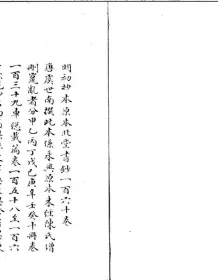 明初抄本原本北堂書鈔一百六十卷
唐虞世南撰此本係永興原本未經陳氏增
刪竄亂者分甲乙丙丁戊己庚辛壬癸十冊卷
一百三十九車總載篇卷一百五十八至一百六